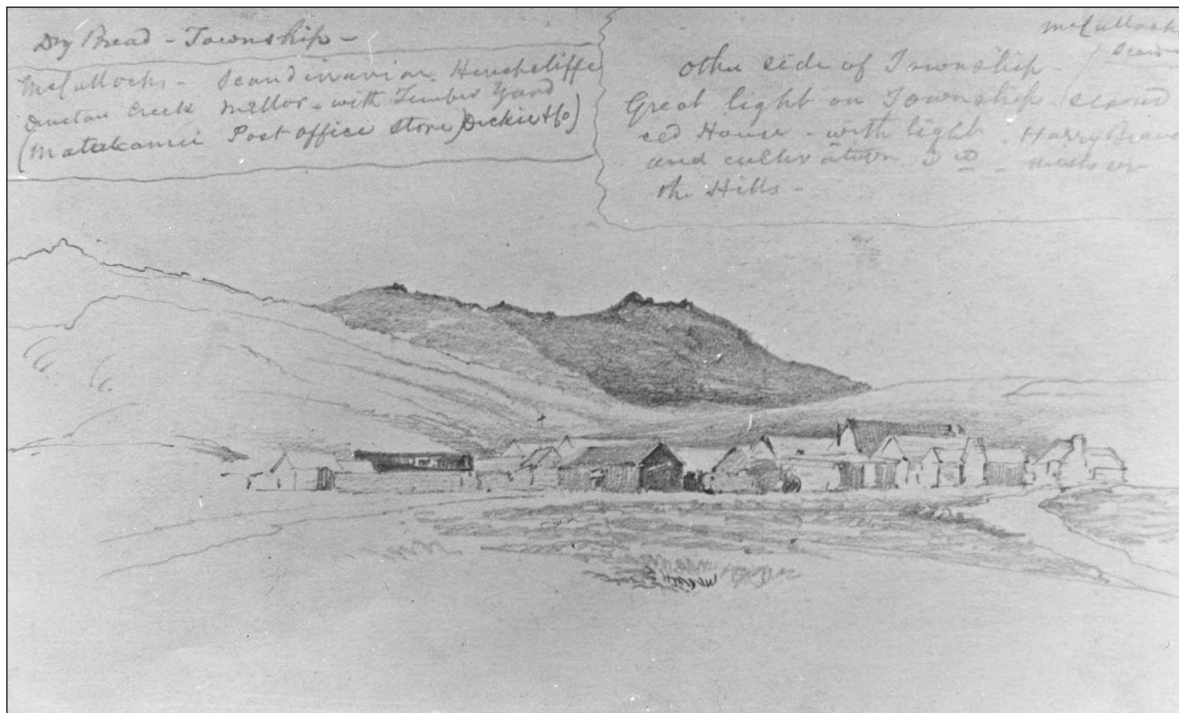 Dry Bread - Township -
McCullochs - Scandinavian Hinchcliffe
Dunstan Creek Mellor - with Timber Yard
(Matakanui Post office Store, Dickie & Co)
McCullochs
other side of Township -
Great light on Township - second
red House - with light. Harry
and cultivation 3rd
the Hills -